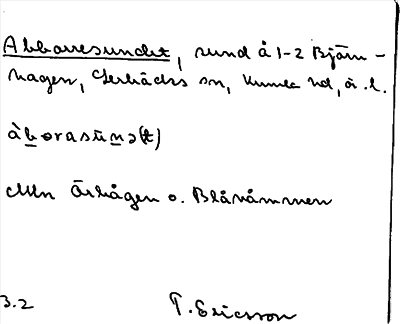 Abborresundet, sund å 1-2 Björn-
hagen, Gerbäcks sn, Kumla hd, ö.l.
àborasùnə(t)
Mln Örhågen o. Blånåmmen
3.2 T. Ericsson